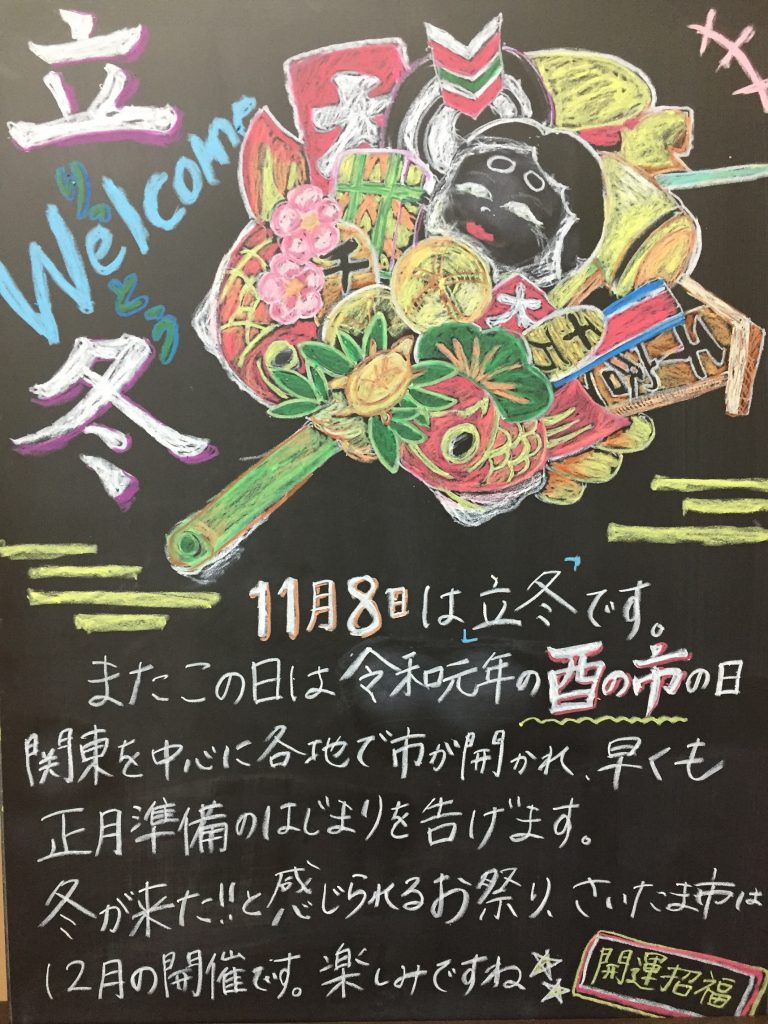 立冬
りっとう
Welcome
大
千
大
千万
11月8日は「立冬」です。
またこの日は令和元年の酉の市の日
関東を中心に各地で市が開かれ、早くも
正月準備のはじまりを告げます。
冬が来た!!と感じられるお祭り、さいたま市は
12月の開催です。楽しみですね
開運招福